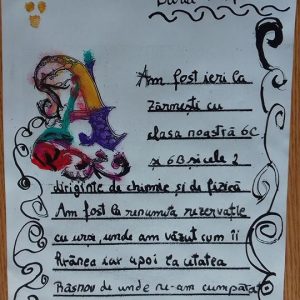 Am fost ieri la
Zărnești cu
clasa noastră 6C
și 6B și cele 2
diriginte de chimie și de fizică
Am fost la renumita rezervație
cu urși, unde am văzut cum îi
hrănea iar apoi la cetatea
Râșnov de unde ne-am cumpărat